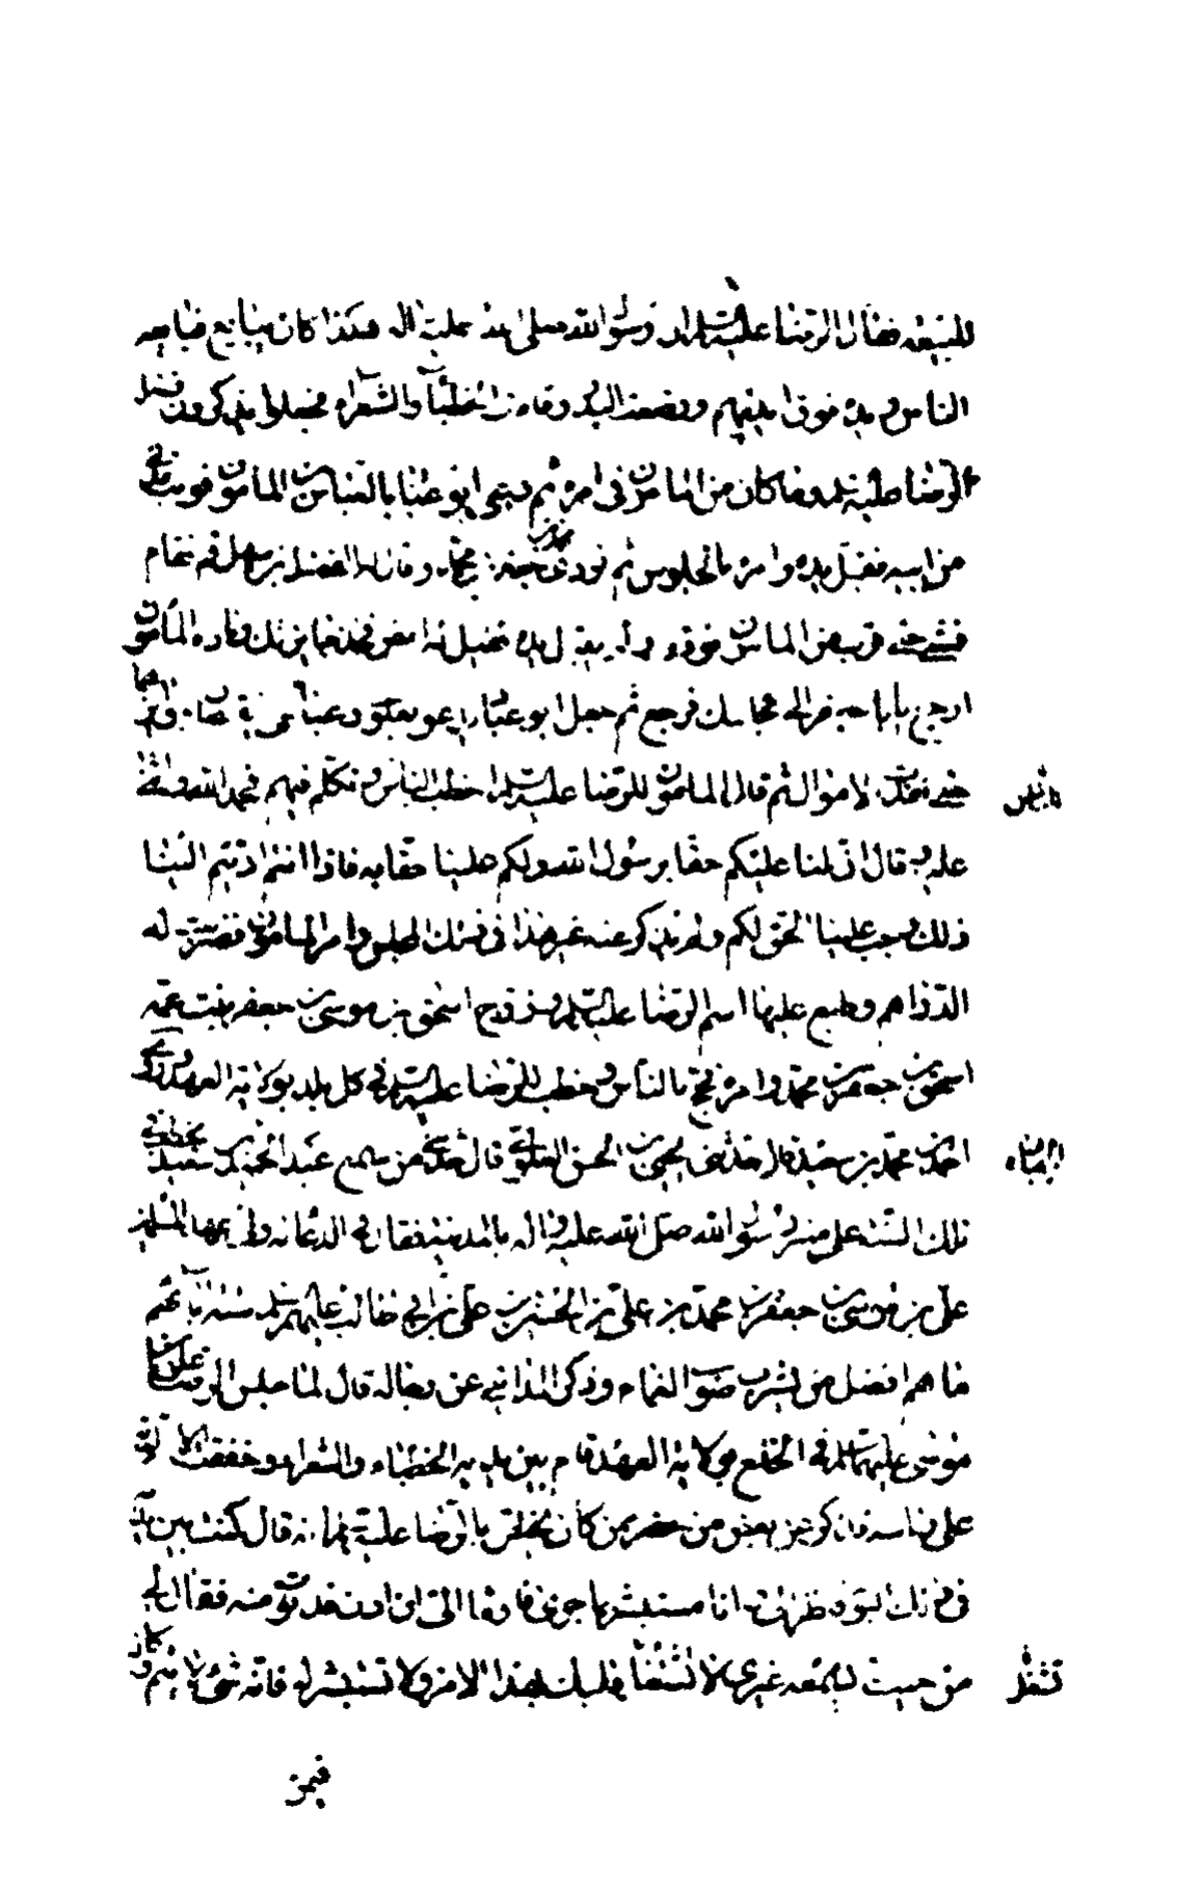 للبيعة فقال الرضا عليه السلام ان رسول الله صلى الله عليه واله هكذا كان يبايع فبايعه
الناس ويده فوق ايديهم ووضعت البدر وقامت الخطباء والشعراء فجعلوا يذكرون فضل
الرضا عليه السلم وما كان من المامون في امره ثم دعى ابو عباد بالعباس بن المامون فوثب فدنى
من ابيه فقبل يده وامره بالجلوس ثم نودى محمد بن جعفر بن محمد وقال له الفضل بن سهل قم فقام
فمشى حتى قرب من المامون فوقف ولم يقبل يده فقيل له امض فخذ جايزتك وناداه المأمون
ارجع يا ابا جعفر الى مجلسك فرجع ثم جعل ابو عباد يدعو بعلوى وعباسى فيقبضان جوايزهما
حتى نفدت الاموال ثم قال المامون للرضا عليه السلم اخطب الناس وتكلم فيهم فحمد الله واثنى
عليه وقال ان لنا عليكم حقا برسول الله ولكم علينا حقا به فاذا انتم اديتم الينا
ذلك وجب علينا الحق لكم ولم يذكر عنه غير هذا في ذلك المجلس وامر المامون فضربت له
الدراهم وطبع عليها اسم الرضا عليه السلم وزوج اسحق بن موسى بن جعفر بنت عمه
اسحق بن جعفر بن محمد وامره فحج بالناس وخطب للرضا عليه السلم في كل بلد بولاية العهد وروى
احمد بن محمد بن سعيد قال حدثنى يحيى بن الحسن العلوى قال حدثنى من سمع عبد الحميد بن سعيد يخطب في
تلك السنة على منبر رسول الله صلى الله عليه واله بالمدينة فقال في الدعاء له ولى عهد المسلمين
على بن موسى بن جعفر بن محمد بن على بن الحسين بن على بن ابي طالب عليهم السلم ستة اباءهم
ما هم افضل من يشرب صوب الغمام وذكر المداينى عن رجاله قال لما جلس الرضا على بن
موسى عليهما السلم في الخلع بولاية العهد قام بين يديه الخطباء والشعراء وخفقت الالوية
على راسه فذكر عن بعض من حضر ممن كان يختص بالرضا عليه السلم انه قال كنت بين يديه
في ذلك اليوم فنظر الى وانا مستبشر بما جرى فاومأ الى ان ادن فدنوت منه فقال لى
من حيث لا يسمعه غيرى لا تشغل قلبك بهذا الامر ولا تستبشر له فانه شئ لا يتم وكان
فيمن